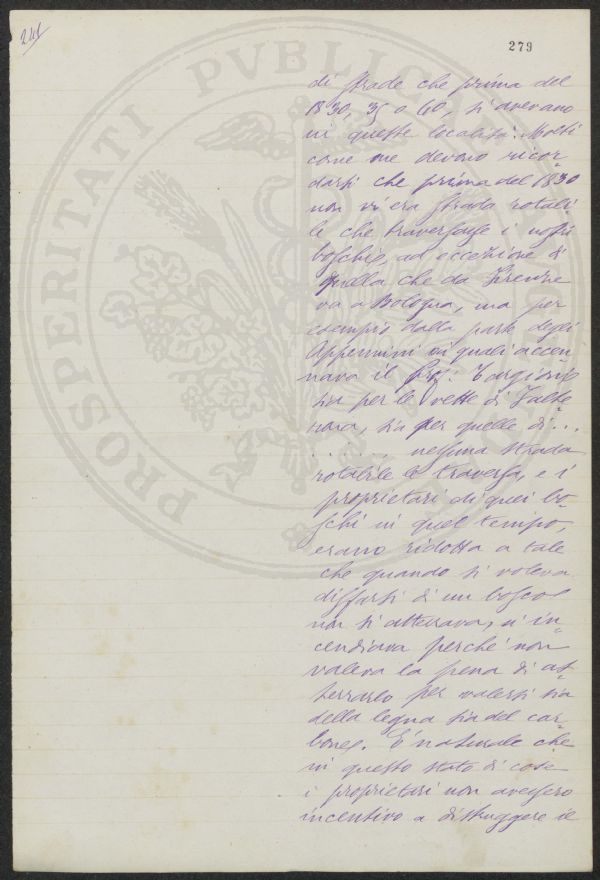 241
279
PROSPERITATI PVBLICAE
di strade che prima del
1830, 35 o 40, si avevano
in queste località. Molti
come me devono ricor=
darsi che prima del 1830
non vi era strada rotabi
le che traversasse i nostri
boschi, ad eccezione di
quella che da Firenze
va a Bologna, ma per
esempio dalla parte degli
Appennini ai quali accen=
nava il Prof: Targioni
sia per le vette di Falte
rona, sia per quelle di ...
. . . . . , nessuna strada
rotabile le traversa, e i
proprietari di quei bo=
schi in quel tempo,
erano ridotti a tale
che quando si voleva
disfarsi di un bosco
non si atterrava, si in=
cendiava perché non
valeva la pena di at=
terrarlo per valersi sia
della legna sia del car=
bone. È naturale che
in questo stato di cose
i proprietari non avessero
incentivo a distruggere il